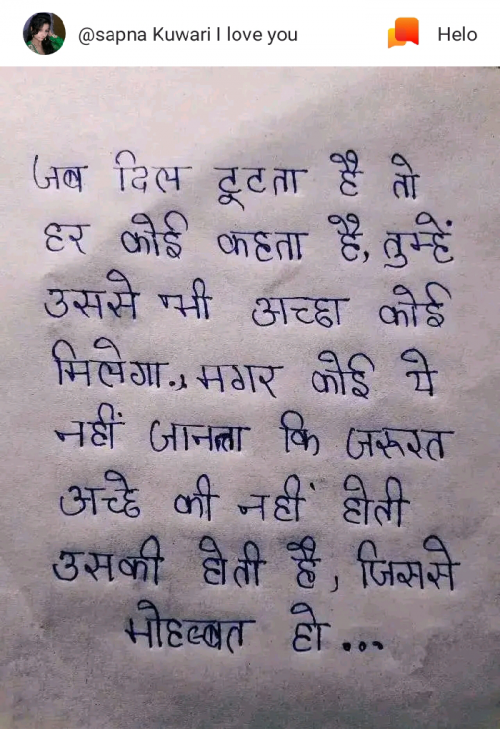 @sapna Kuwari I love you
Helo
जब दिल टूटता है तो
हर कोई कहता है, तुम्हें
उससे भी अच्छा कोई
मिलेगा., मगर कोई ये
नहीं जानता कि जरूरत
अच्छे की नहीं होती
उसकी होती है, जिससे
मोहब्बत हो...